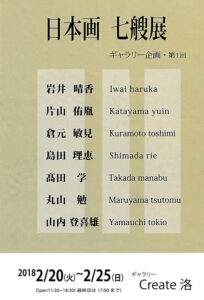 日本画 七艘展
ギャラリー企画・第1回
岩井 晴香 Iwai haruka
片山 侑胤 Katayama yuin
倉元 敏見 Kuramoto toshimi
島田 理恵 Shimada rie
髙田 学 Takada manabu
丸山 勉 Maruyama tsutomu
山内 登喜雄 Yamauchi tokio
2018 2/20(火)~2/25(日)
Open11:30~18:30(最終日は17:00まで)
ギャラリー
Create 洛